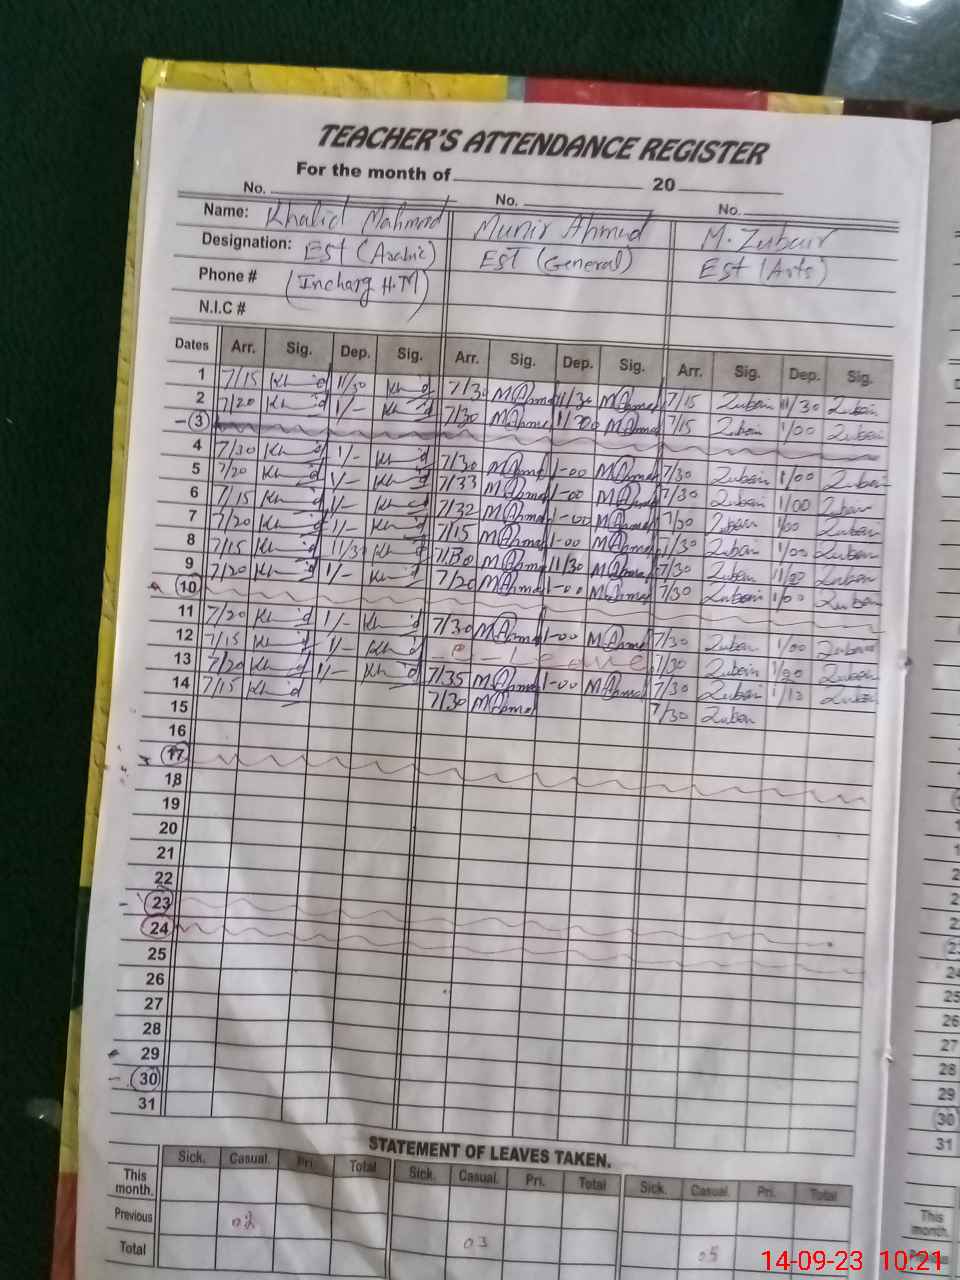 TEACHER'S ATTENDANCE REGISTER
For the month of 20
No. No. No.
Name: Khalid Mahmood Munir Ahmed M. Zubair
Designation: Est (Arabic) EST (General) Est (Arts)
Phone # (Incharg H.M)
N.I.C #
Dates Arr. Sig. Dep. Sig. Arr. Sig. Dep. Sig. Arr. Sig. Dep. Sig.
1 7/15 11/30 7/30 M Ahmad 11/30 M Ahmad 7/15 Zubair 11/30 Zubair
2 7/20 1/- 7/30 M Ahmad M Ahmad 7/15 Zubair 1/00 Zubair
3
4 7/30 1/- 7/30 M Ahmad 1-00 M Ahmad 7/30 Zubair 1/00 Zubair
5 7/20 1/- 7/33 M Ahmad 1-00 M Ahmad 7/30 Zubair 1/00 Zubair
6 7/15 1/- 7/32 M Ahmad 1-00 M Ahmad Zubair 1/00 Zubair
7 7/20 1/- 7/15 M Ahmad 1-00 M Ahmad 7/30 Zubair 1/00 Zubair
8 7/15 11/30 M Ahmad 11/30 M Ahmad 7/30 Zubair Zubair
9 7/20 1/- 7/20 M Ahmad 1-00 M Ahmad 7/30 Zubair 1/00 Zubair
10
11 7/20 1/- 7/30 M Ahmad 1-00 M Ahmad 7/30 Zubair 1/00 Zubair
12 7/15 1/- Leave 7/30 Zubair Zubair
13 7/20 1/- 7/35 M Ahmad 1-00 M Ahmad 7/30 Zubair 1/10 Zubair
14 7/15 7/30 M Ahmad 7/30 Zubair
15
16
17
18
19
20
21
22
23
24
25
26
27
28
29
30
31
STATEMENT OF LEAVES TAKEN.
Sick. Casual. Pri. Total Sick. Casual. Pri. Total Sick. Casual. Pri. Total
This month.
Previous 02 03 05
Total
14-09-23 10:21
25
26
27
28
29
30
31
This
month.